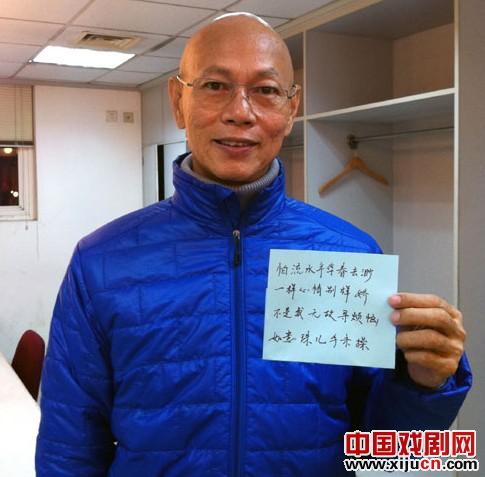 怕流水年华春去渺
一样心情别样娇
不是我无故寻烦恼
如意珠儿手未操
中国戏剧网
www.xijucn.com